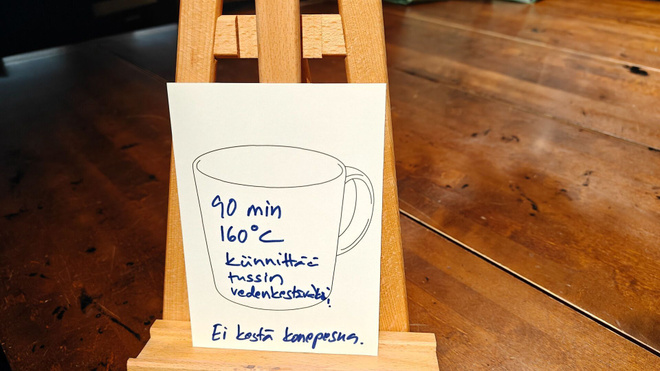 90 min
160°C
kiinnittää
tussin
vedenkestäväksi!
Ei kestä konepesua.